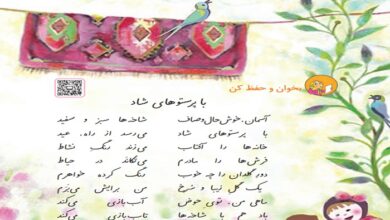 بخوان و حفظ کن
با پرستوهای شاد
آسمان، خوش‌حال و صاف شاخه‌ها سبز و سفید
با پرستوهای شاد می‌رسد از راه، عید
خانه‌ها را آفتاب می‌زند رنگ نشاط
فرش‌ها را مادرم می‌تکاند در حیاط
دور گلدان را چه خوب رنگ کرده خواهرم
یک گل زیبا و سرخ من برایش می‌برم
ماهی من، توی حوض آب‌بازی می‌کند
باد هم با شاخه‌ها تاب‌بازی می‌کند